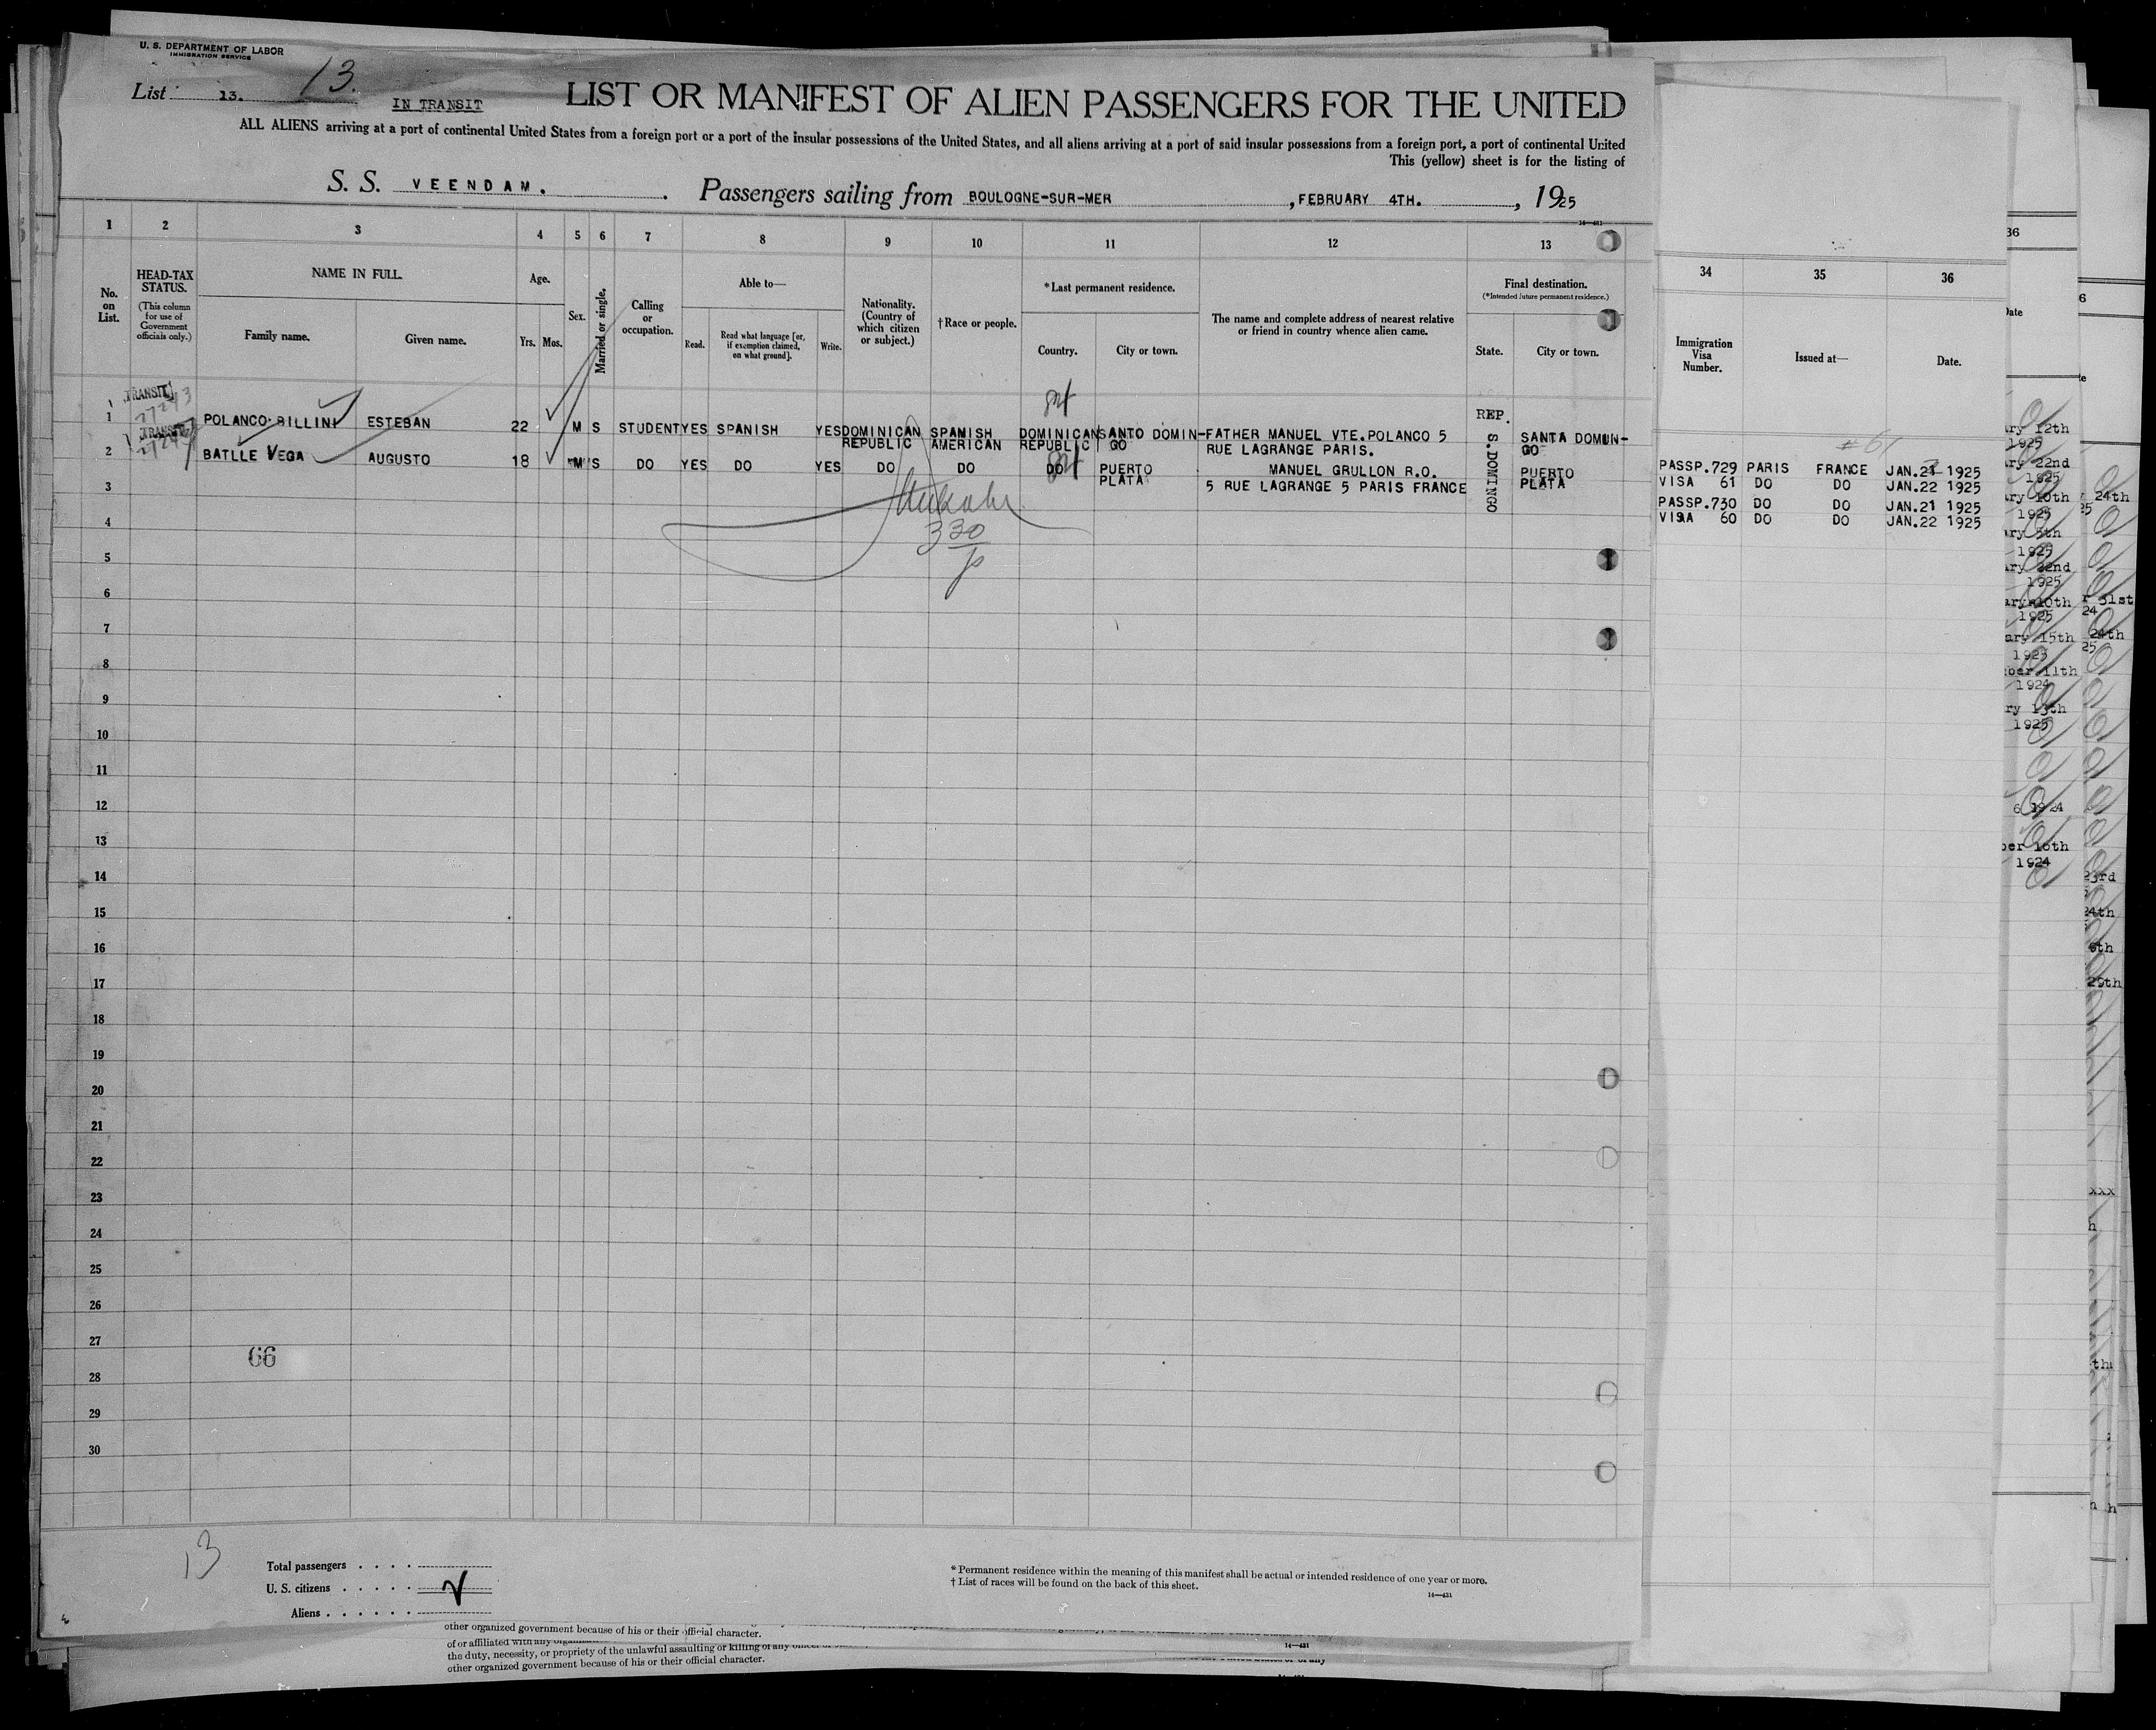 U. S. DEPARTMENT OF LABOR
IMMIGRATION SERVICE
List 13. 13.
IN TRANSIT
LIST OR MANIFEST OF ALIEN PASSENGERS FOR THE UNITED
ALL ALIENS arriving at a port of continental United States from a foreign port or a port of the insular possessions of the United States, and all aliens arriving at a port of said insular possessions from a foreign port, a port of continental United
This (yellow) sheet is for the listing of
S. S. VEENDAM. Passengers sailing from BOULOGNE-SUR-MER, FEBRUARY 4TH., 1925
1 2 3 4 5 6 7 8 9 10 11 12 13
No. on List.
HEAD-TAX STATUS.
(This column for use of Government officials only.)
NAME IN FULL.
Family name. Given name.
Age.
Yrs. Mos.
Sex.
Married or single.
Calling or occupation.
Able to—
Read. Read what language [or, if exemption claimed, on what ground]. Write.
Nationality. (Country of which citizen or subject.)
†Race or people.
*Last permanent residence.
Country. City or town.
The name and complete address of nearest relative or friend in country whence alien came.
Final destination.
(*Intended future permanent residence.)
State. City or town.
34 35 36
Immigration Visa Number. Issued at— Date.
TRANSIT
1 POLANCO BILLINI ESTEBAN 22 M S STUDENT YES SPANISH YES DOMINICAN SPAMISH DOMINICAN SANTO DOMIN- FATHER MANUEL VTE.POLANCO 5 REP. SANTA DOMUN-
REPUBLIC AMERICAN REPUBLIC GO RUE LAGRANGE PARIS. S.DOMINGO GO
TRANSIT
2 BATLLE VEGA AUGUSTO 18 M S DO YES DO YES DO DO DO PUERTO MANUEL GRULLON R.O. PUERTO
PLATA 5 RUE LAGRANGE 5 PARIS FRANCE PLATA
#61
PASSP.729 PARIS FRANCE JAN.21 1925
VISA 61 DO DO JAN.22 1925
PASSP.730 DO DO JAN.21 1925
VISA 60 DO DO JAN.22 1925
330
3
4
5
6
7
8
9
10
11
12
13
14
15
16
17
18
19
20
21
22
23
24
25
26
27
66
28
29
30
13
Total passengers
U. S. citizens
Aliens
*Permanent residence within the meaning of this manifest shall be actual or intended residence of one year or more.
†List of races will be found on the back of this sheet.
14—431
other organized government because of his or their official character.
the duty, necessity, or propriety of the unlawful assaulting or killing of any
other organized government because of his or their official character.
14—431